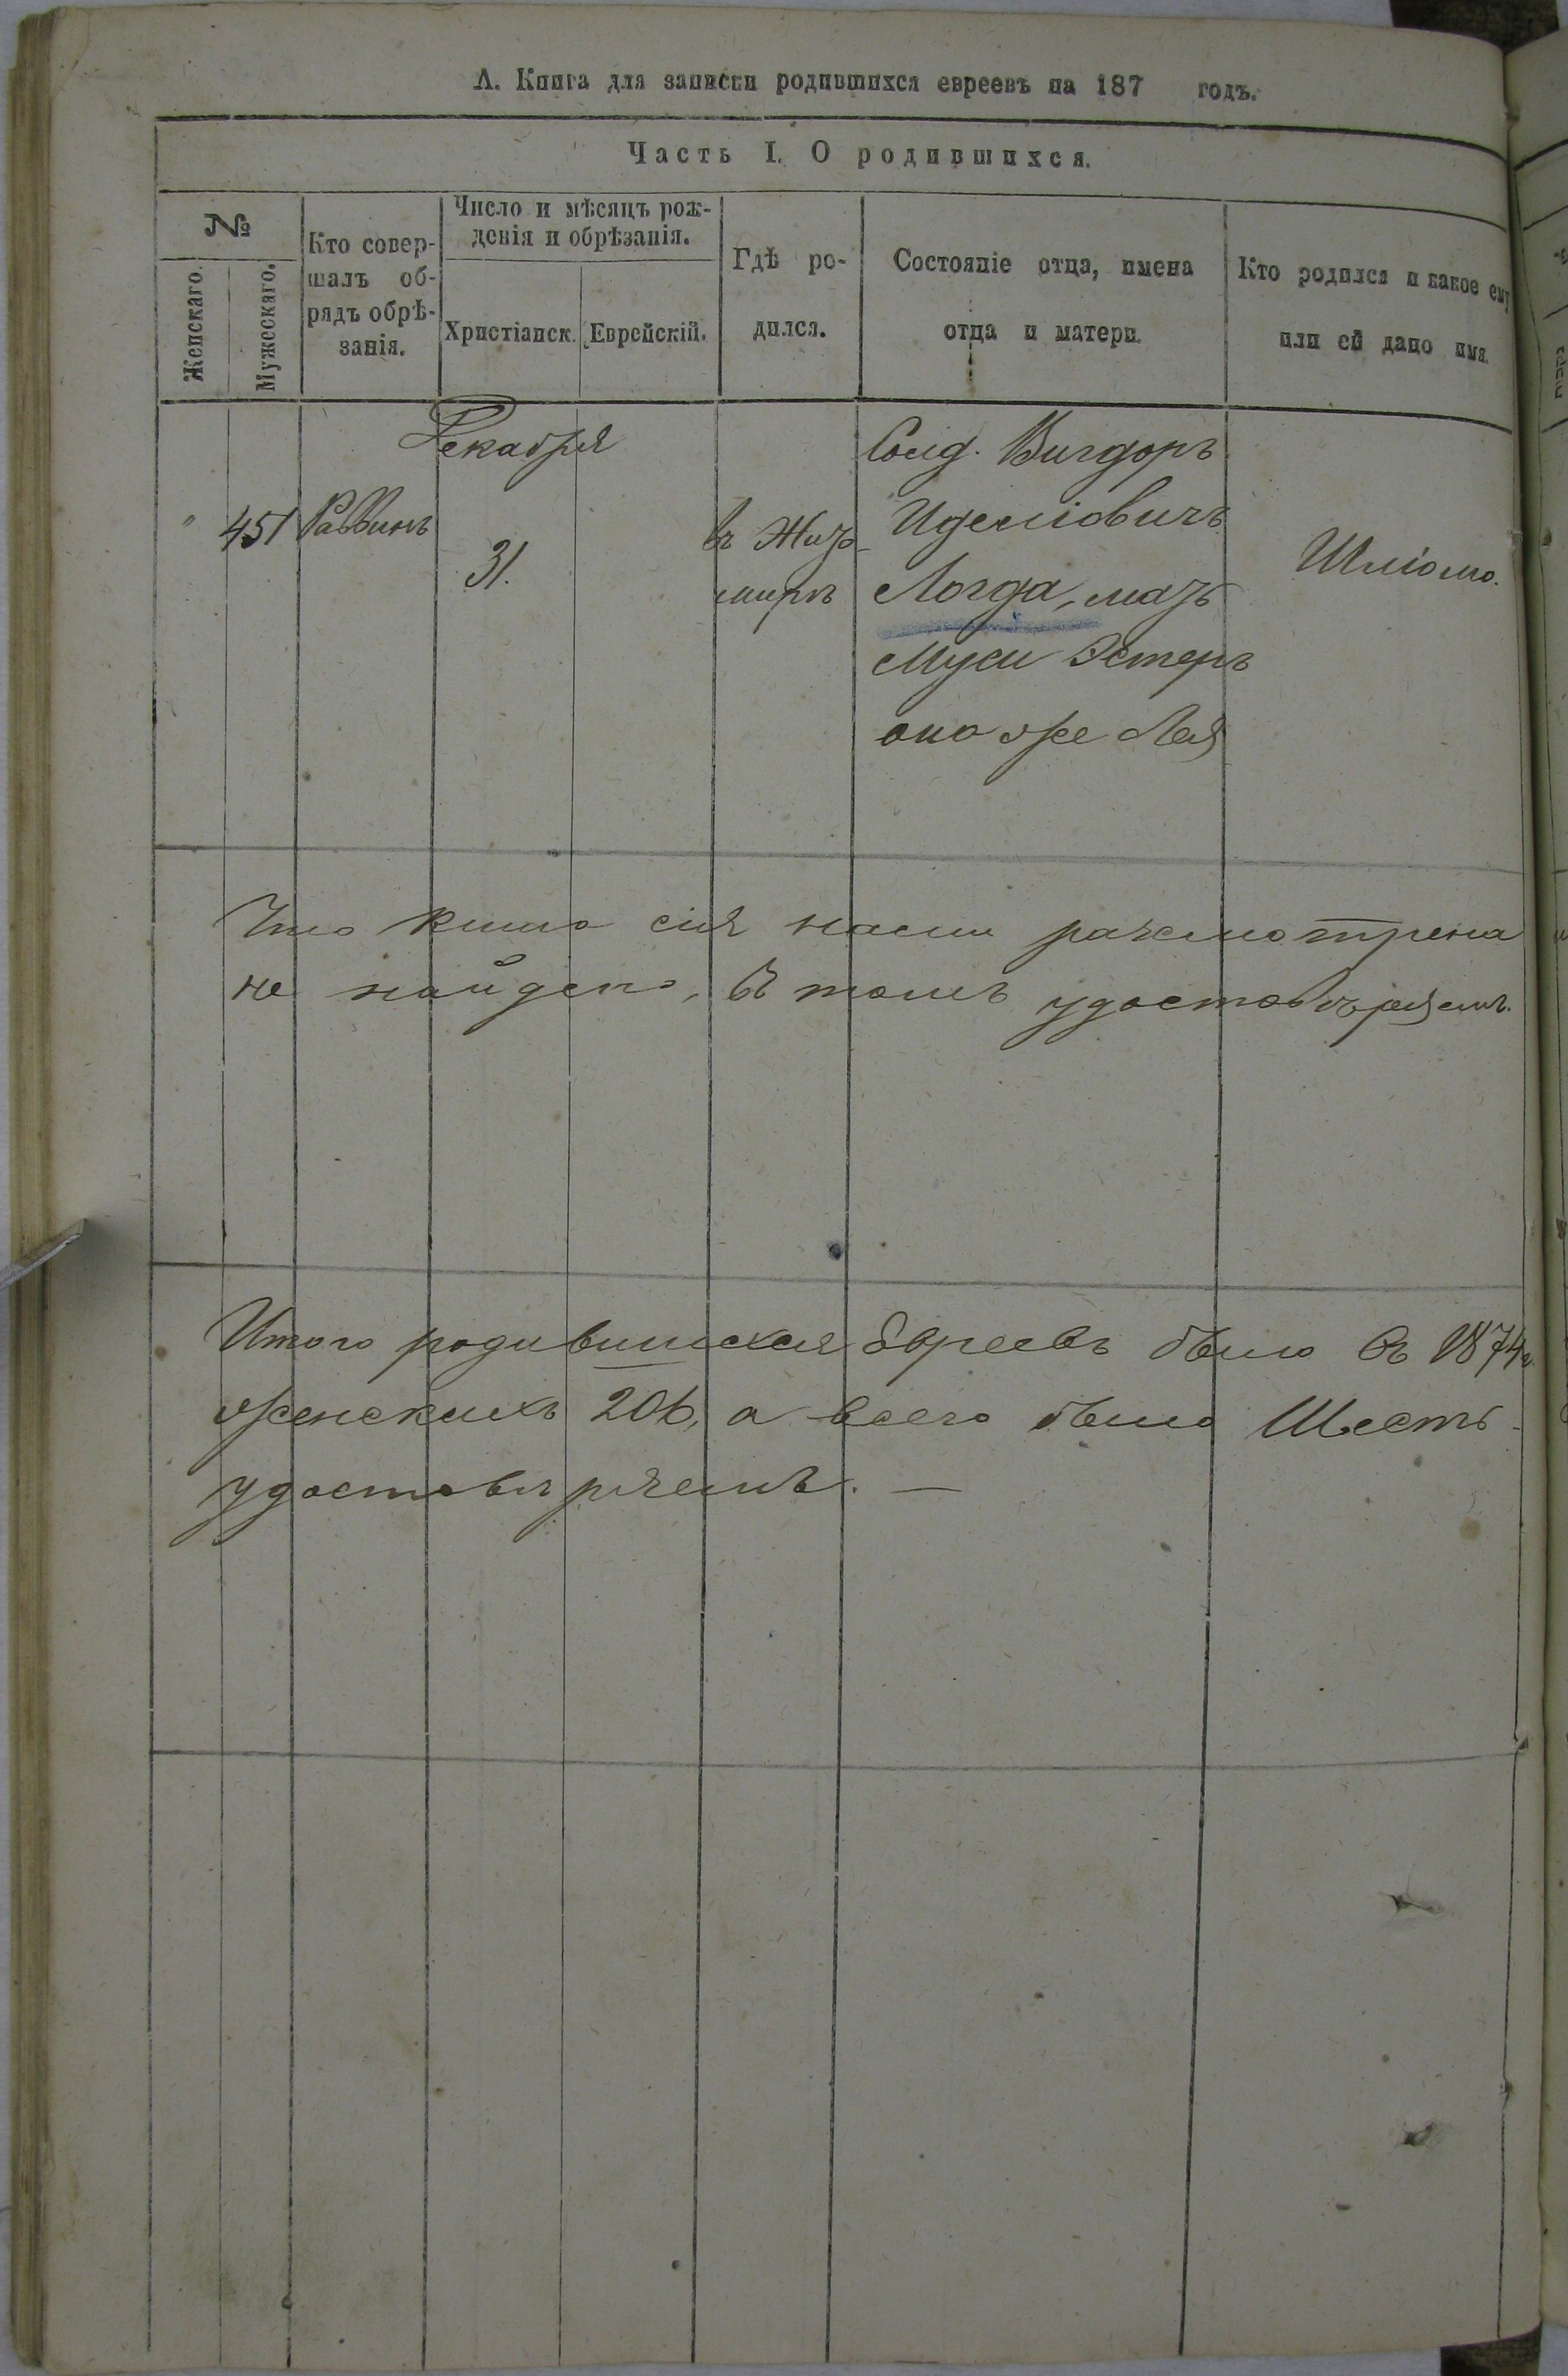 А. Книга для записки родившихся евреевъ на 187 годъ.
Часть I. О родившихся.
№
Женскаго.
Мужескаго.
Кто совер-
шалъ об-
рядъ обрѣ-
занія.
Число и мѣсяцъ рож-
денія и обрѣзанія.
Христіанск.
Еврейскій.
Гдѣ ро-
дился.
Состояніе отца, имена
отца и матери.
Кто родился и какое ему
или ей дано имя.
Декабря
" 451
Раввинъ
31.
въ Жито-
мирѣ
Солд. Вигдоръ
Иделіовичъ
Логда, мать
Муси Эстеръ
она же Лея
Шліомо.
Что книга сія нами разсмотрена
не найдено, въ томъ удостовѣряемъ.
Итого родившихся Евреевъ было въ 1874 г.
женскихъ 206, а всего было Шесть-
удостовѣряемъ. —